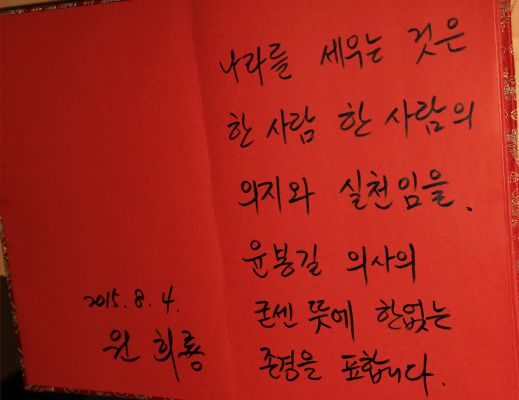 나라를 세우는 것은
한 사람 한 사람의
의지와 실천임을.
윤봉길 의사의
굳센 뜻에 한없는
존경을 표합니다.
2015. 8. 4.
원 희룡